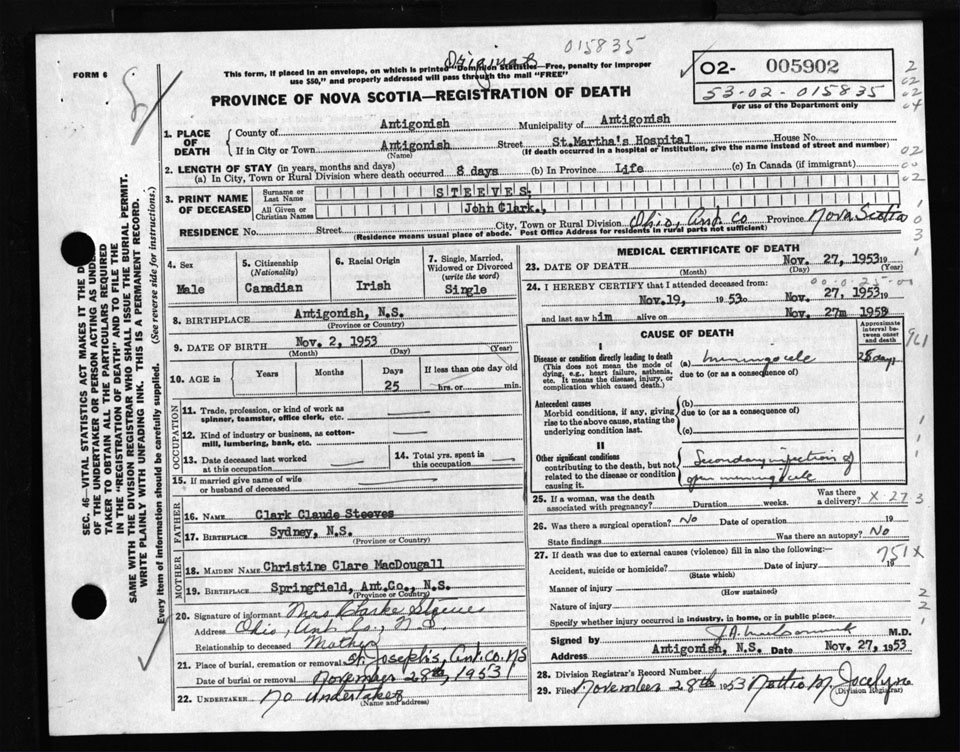 015835
Original
FORM 6
This form, if placed in an envelope, on which is printed "Dominion Statistics—Free, penalty for improper
use $50," and properly addressed will pass through the mail "FREE"
02- 005902
53-02-015835
For use of the Department only
PROVINCE OF NOVA SCOTIA—REGISTRATION OF DEATH
1. PLACE OF DEATH
County of Antigonish Municipality of Antigonish
If in City or Town Antigonish Street St.Martha's Hospital House No.
(Name) (If death occurred in a hospital or institution, give the name instead of street and number)
2. LENGTH OF STAY (in years, months and days)
(a) In City, Town or Rural Division where death occurred 8 days (b) In Province Life (c) In Canada (if immigrant)
3. PRINT NAME OF DECEASED
Surname or Last Name STEEVES.
All Given or Christian Names John Clark.,
RESIDENCE No. Street City, Town or Rural Division Ohio, Ant. Co Province Nova Scotia
(Residence means usual place of abode. Post Office Address for residents in rural parts not sufficient)
4. Sex
Male
5. Citizenship
(Nationality)
Canadian
6. Racial Origin
Irish
7. Single, Married, Widowed or Divorced
(write the word)
Single
8. BIRTHPLACE Antigonish, N.S.
(Province or Country)
9. DATE OF BIRTH Nov. 2, 1953
(Month) (Day) (Year)
10. AGE in
Years Months Days If less than one day old
25 hrs. or min.
OCCUPATION
11. Trade, profession, or kind of work as
spinner, teamster, office clerk, etc.
12. Kind of industry or business, as cotton-
mill, lumbering, bank, etc.
13. Date deceased last worked
at this occupation
14. Total yrs. spent in
this occupation
15. If married give name of wife
or husband of deceased
FATHER
16. NAME Clark Claude Steeves
17. BIRTHPLACE Sydney, N.S.
(Province or Country)
MOTHER
18. MAIDEN NAME Christine Clare MacDougall
19. BIRTHPLACE Springfield, Ant.Co., N.S.
(Province or Country)
20. Signature of informant Mrs Clarke Steeves
Address Ohio, Ant. Co., N.S.
Relationship to deceased Mother
21. Place of burial, cremation or removal St. Joseph's, Ant. Co. NS
Date of burial or removal November 28th, 1953
22. UNDERTAKER No Undertaker
(Name and address)
MEDICAL CERTIFICATE OF DEATH
23. DATE OF DEATH Nov. 27, 1953 19
(Month) (Day) (Year)
24. I HEREBY CERTIFY that I attended deceased from:
Nov.19, 1953 to Nov. 27, 1953 19
and last saw him alive on Nov. 27m 1953
CAUSE OF DEATH
Approximate interval between onset and death
I
Disease or condition directly leading to death
(This does not mean the mode of
dying, e.g., heart failure, asthenia,
etc. It means the disease, injury, or
complication which caused death.)
(a) meningocele
due to (or as a consequence of)
Antecedent causes
Morbid conditions, if any, giving
rise to the above cause, stating the
underlying condition last.
(b)
due to (or as a consequence of)
(c)
II
Other significant conditions
contributing to the death, but not
related to the disease or condition
causing it.
Secondary infection of
open meningocele
25. If a woman, was the death
associated with pregnancy? Duration weeks. Was there a delivery?
X-27 3
26. Was there a surgical operation? No Date of operation 19
State findings Was there an autopsy? No
27. If death was due to external causes (violence) fill in also the following:—
751 X
Accident, suicide or homicide? Date of injury 19
(State which)
Manner of injury
(How sustained)
Nature of injury
Specify whether injury occurred in industry, in home, or in public place.
Signed by M.D.
Address Antigonish, N.S. Date Nov. 27, 1953
28. Division Registrar's Record Number
29. Filed November 28th 1953 Mattie M. Jocelyn
(Division Registrar)
SEC. 46—VITAL STATISTICS ACT MAKES IT THE
OF THE UNDERTAKER OR PERSON ACTING AS UNDER
TAKER TO OBTAIN ALL THE PARTICULARS REQUIRED
IN THE "REGISTRATION OF DEATH" AND TO FILE THE
SAME WITH THE DIVISION REGISTRAR WHO SHALL ISSUE THE BURIAL PERMIT.
WRITE PLAINLY WITH UNFADING INK. THIS IS A PERMANENT RECORD.
Every item of information should be carefully supplied. (See reverse side for instructions.)